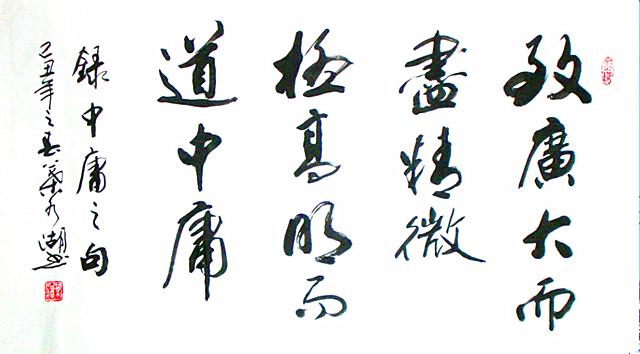 致廣大而
盡精微
極高明而
道中庸
録中庸之句
己丑年之春葉